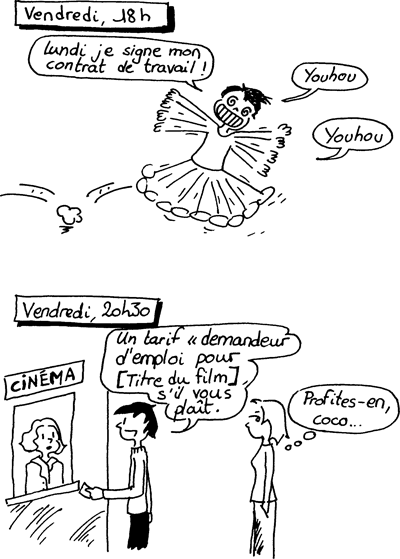 Vendredi, 18h
lundi je signe mon
contrat de travail !
Youhou
Youhou
Vendredi, 20h30
Un tarif « demandeur
d'emploi pour
[Titre du film]
s'il vous
plaît.
CINÉMA
Profites-en,
coco...